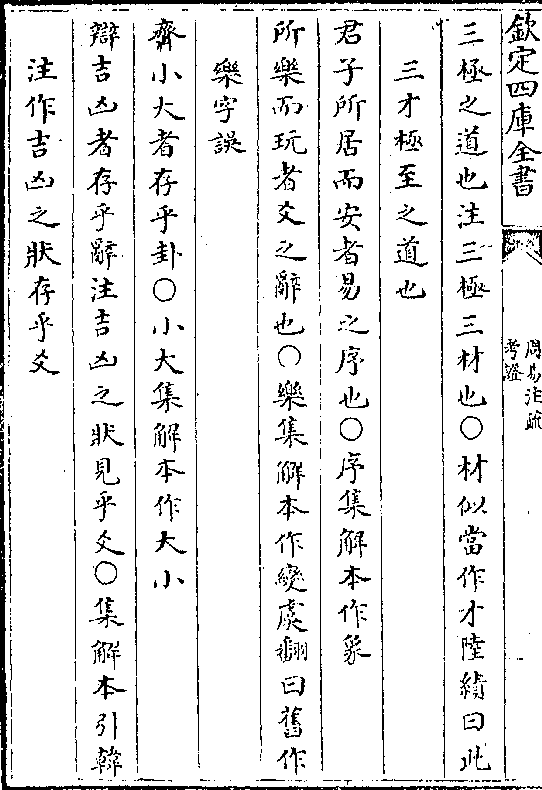 欽定四庫全書
周易注疏
考證
三極之道也注三極三材也○材似當作才陸績曰此
三才極至之道也
君子所居而安者易之序也○序集解本作象
所樂而玩者爻之辭也○樂集解本作變虞翻曰舊作
樂字誤
齊小大者存乎卦○小大集解本作大小
辯吉凶者存乎辭注吉凶之狀見乎爻○集解本引韓
注作吉凶之狀存乎爻